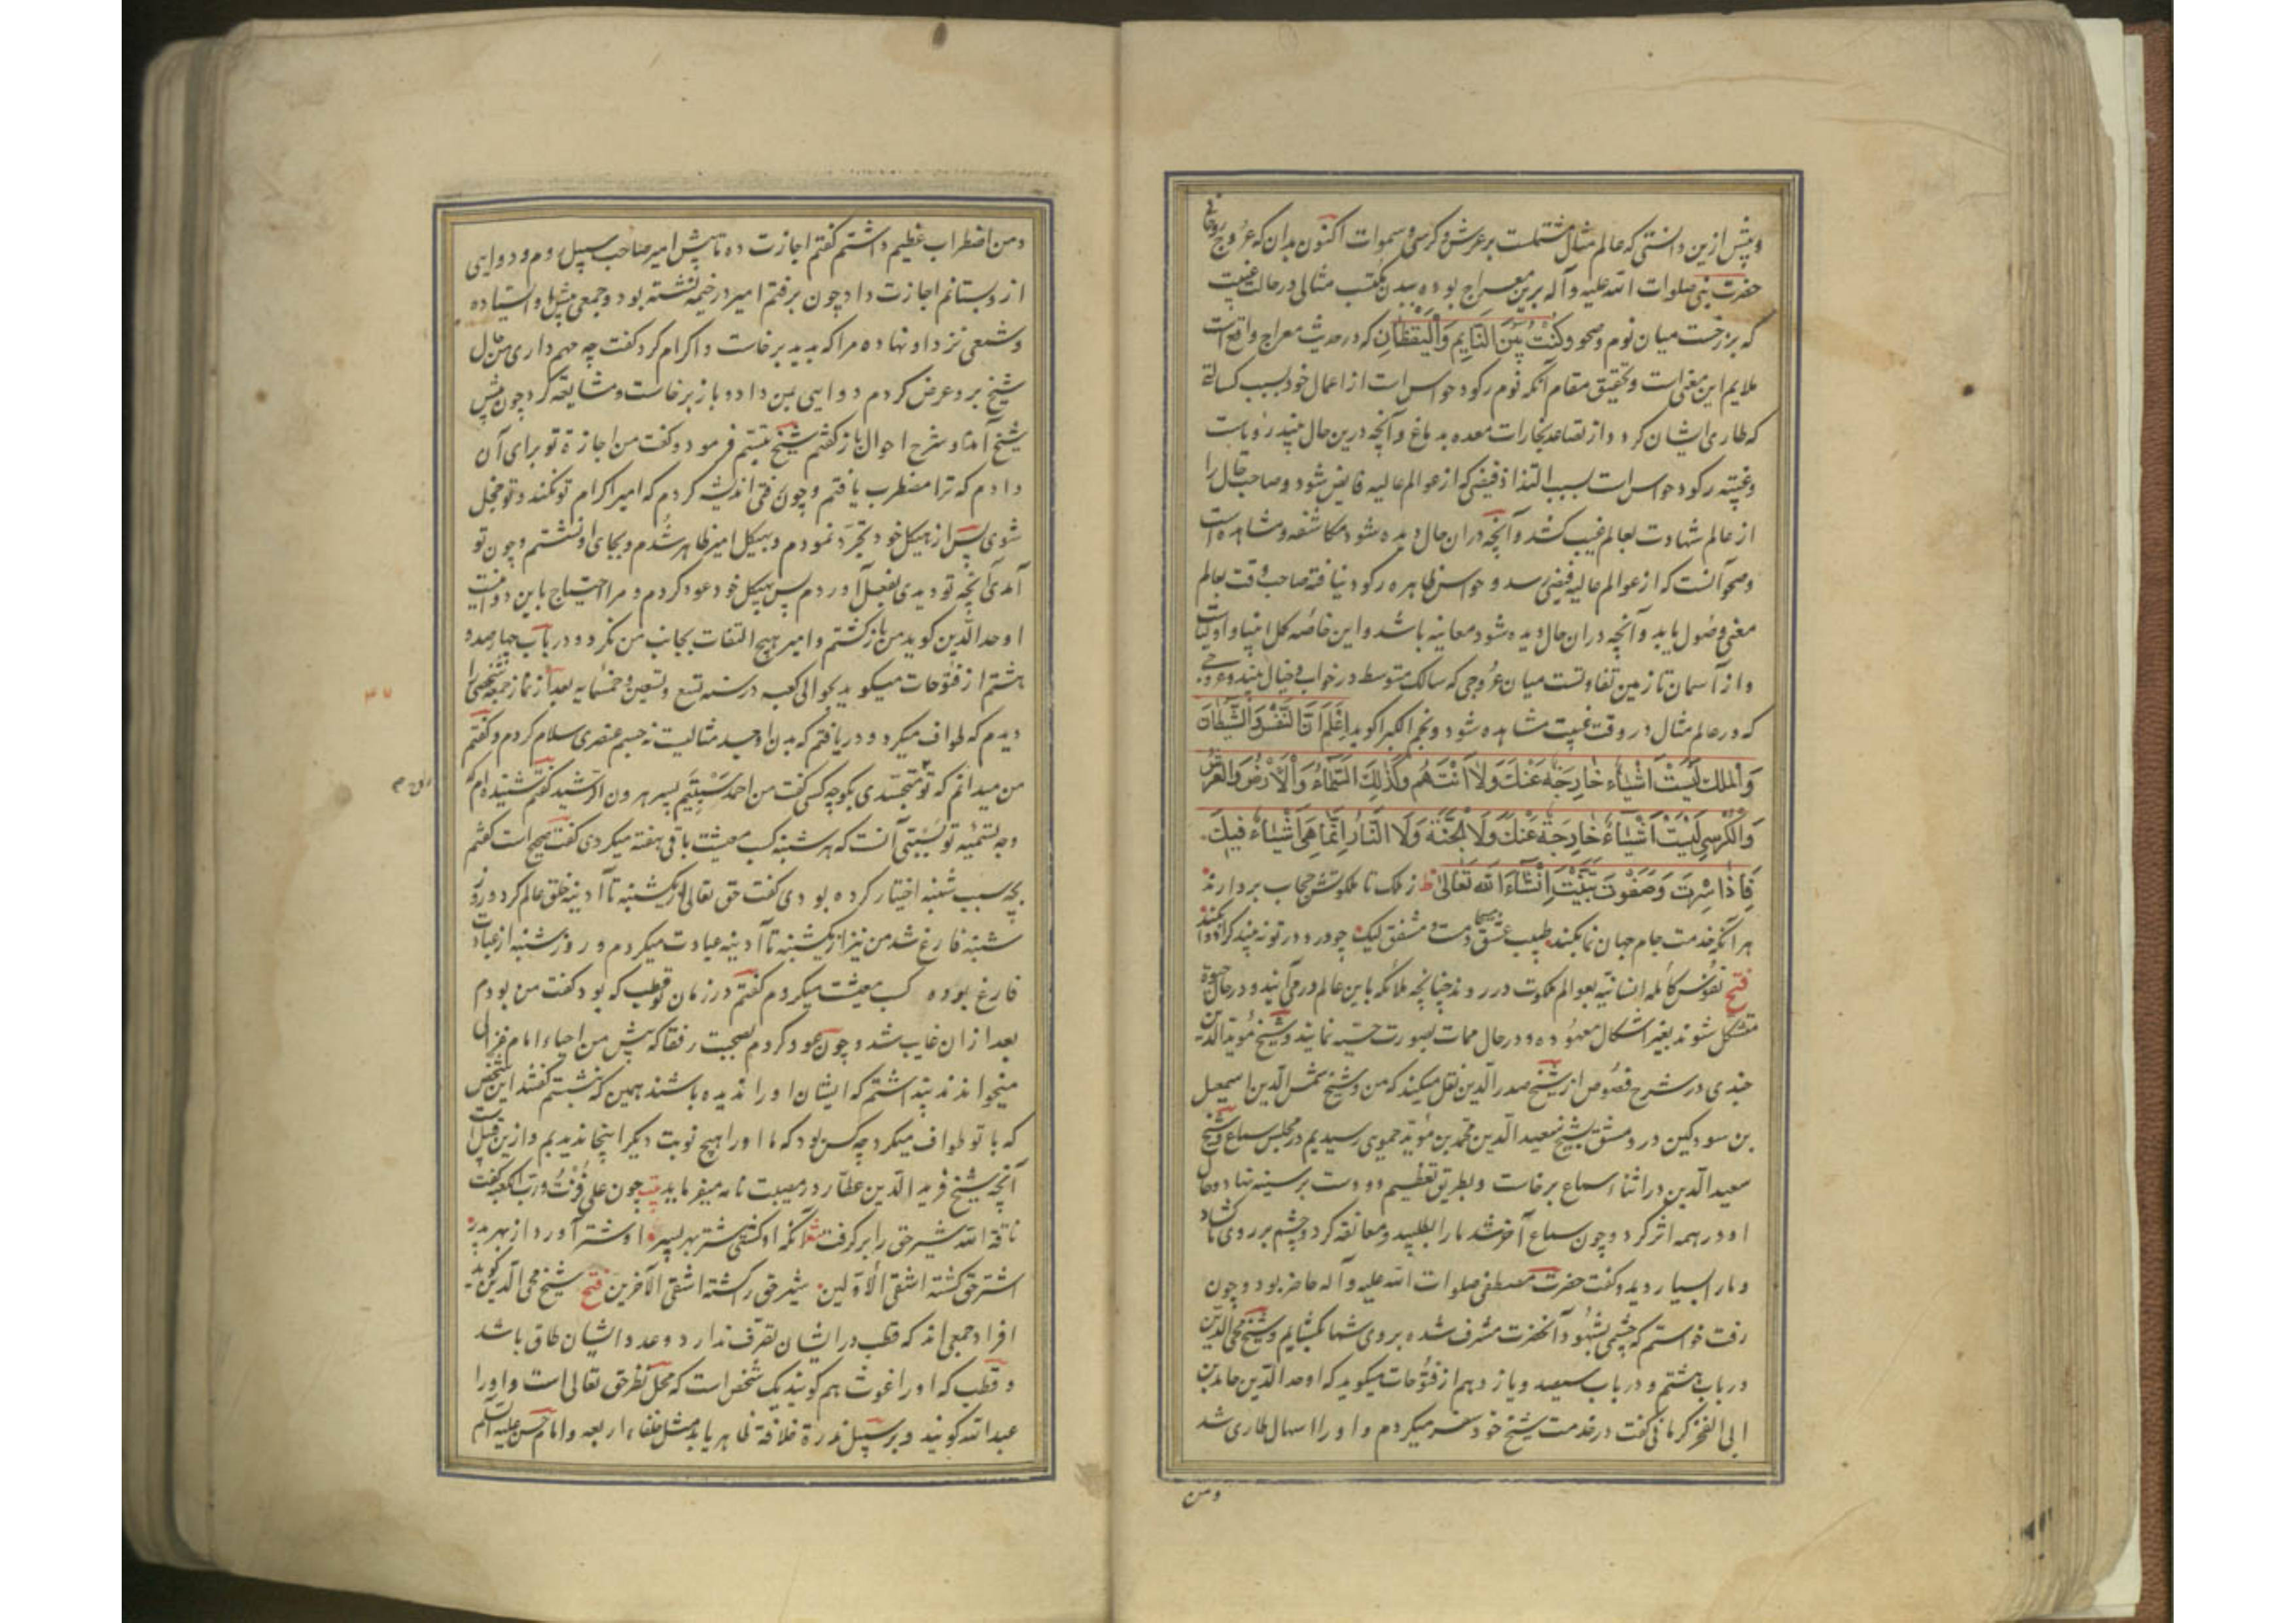 و پیش ازین دانستی که عالم مثال مشتملست بر عرش و کرسی و سموات اکنون بدان که عروج روحانی
حضرت نبی صلوات الله علیه و آله برین معراج بوده ببدن مکتسب مثالی در حالت غیبت
که برزخست میان نوم و صحو و کُنْتُ بَیْنَ النّایِمِ وَالْیَقْظانِ که در حدیث معراج واقع است
ملایم این معنی است و تحقیق مقام آنکه نوم رکود حواس است از اعمال خود بسبب کسالة
که طاری ایشان کردد از تصاعد بخارات معده بدماغ و آنچه درین حال بیند رویاست
و غیبت رکود حواس است بسبب التذاذ فیضی که از عوالم عالیه فایض شود و صاحب حال را
از عالم شهادت بعالم غیب کشد و آنچه در ان حال دیده شود مکاشفه و مشاهده است
و صحو آنست که از عوالم عالیه فیض رسد و حواس ظاهره رکود نیافته صاحب وقت بعالم
معنی وصول یابد و آنچه در ان حال دیده شود معاینه باشد و این خاصه کمل انبیا و اولیاست
و از آسمان تا زمین تفاوتست میان عروجی که سالک متوسط در خواب و خیال بیند و عروجی
که در عالم مثال در وقت غیبت مشاهده شود و نجم الکبرا کوید اِعْلَمْ اَنَّ النَّفْسَ وَالشَّیْطانَ
وَالْمَلَكَ لَیْسَتْ اَشْیاءَ خارِجَةً عَنْكَ وَلا اَنْتَ هُمْ وَکَذلِكَ السَّماءُ وَالْاَرْضُ وَالْعَرْشُ
وَالْکُرْسِی لَیْسَتْ اَشْیاءَ خارِجَةً عَنْكَ وَلَا الْجَنَّةُ وَلَا النّارُ اِنَّما هِیَ اَشْیاءُ فیكَ
فَاِذا سِرْتَ وَصَفَوْتَ تَبَیَّنْتَ اِنْشآءَ اللّه تَعالی ز ملک تا ملکوتش حجاب بردارند
هر آنکه خدمت جام جهان نما بکند طبیب عشق مسیحا دمست و مشفق لیک چو درد در تو نه بیند کرا دوا بکند
فتح نفوس کامله انسانیه بعوالم ملکوت در روند چنانچه ملائکه باین عالم در می آیند و در حال حیوة
متشکل شوند بغیر اشکال معهوده و در حال ممات بصورت حسیه نمایند و شیخ مؤید الدین
جندی در شرح فصوص از شیخ صدر الدین نقل میکند که من و شیخ شمس الدین اسمعیل
بن سودکین در دمشق بشیخ سعید الدین محمد بن مؤید حموی رسیدیم در مجلس سماع و شیخ
سعید الدین در اثناء سماع برخاست و بطریق تعظیم دو دست بر سینه نهاد و حال
او در همه اثر کرد و چون سماع آخر شد ما را بطلبید و معانقه کرد و چشم بر روی ما کشاد
و ما را بسیار دید و کفت حضرت مصطفی صلوات الله علیه و آله حاضر بود و چون
رفت خواستم که چشمی بشهود آنحضرت مشرف شده بروی شما بکشایم و شیخ محی الدین
در باب هشتم و در باب سیصد و یازدهم از فتوحات میکوید که اوحد الدین حامد بن
ابی الفخر کرمانی کفت در خدمت شیخ خود سفر میکردم و او را اسهال طاری شد
و من
و من اضطراب عظیم داشتم کفتم اجازت ده تا پیش امیر صاحب سبیل روم و دوایی
از و بستانم اجازت داد چون برفتم امیر در خیمه نشسته بود و جمعی پیش او استاده
و شمعی نزد او نهاده مرا که بدید برخاست و اکرام کرد کفت چه مهم داری من حال
شیخ بر و عرض کردم دوایی بمن داد و باز برخاست و مشایعه کرد چون پیش
شیخ آمدم و شرح احوال باز کفتم شیخ تبسم فرمود و کفت من اجازة تو برای آن
دادم که ترا مضطرب یافتم و چون رفتی اندیشه کردم که امیر اکرام تو نکند و تو خجل
شوی پس از هیکل خود تجرد نمودم و بهیکل امیر ظاهر شدم و بجای او نشستم و چون تو
آمدی آنچه تو دیدی بفعل آوردم پس بهیکل خود عود کردم و مرا احتیاج باین دوا نیست
اوحد الدین کوید من باز کشتم و امیر هیچ التفات بجانب من نکرد و در باب چهارصد و
هشتم از فتوحات میکوید بحوالی کعبه در سنه تسع و تسعین و خمسمایه بعد از نماز جمعه شخصی را
دیدم که طواف میکرد و دریافتم که بدن او جسد مثالیست نه جسم عنصری سلام کردم و کفتم
من میدانم که تو متجسدی بکو چه کسی کفت من احمد سبتیم پسر هرون الرشید کفتم شنیده ام که
وجه تسمیه تو بسبتی آنست که هر شنبه کسب معیشت باقی هفته میکردی کفت صحیح است کفتم
بچه سبب شنبه اختیار کرده بودی کفت حق تعالی از یکشنبه تا آدینه خلق عالم کرد و روز
شنبه فارغ شد من نیز از یکشنبه تا آدینه عبادت میکردم و روز شنبه از عبادت
فارغ بوده کسب معیشت میکردم کفتم در زمان تو قطب که بود کفت من بودم
بعد از ان غایب شد و چون عود کردم بصحبت رفقا که پیش من احیاء امام غزالی
میخواندند پنداشتم که ایشان او را ندیده باشند همین که نشستم کفتند این شخص
که با تو طواف میکرد چه کس بود که ما او را هیچ نوبت دیکر اینجا ندیدیم و ازین قبیل است
آنچه شیخ فرید الدین عطار در مصیبت نامه میفرماید چون علی فُزْتُ وَرَبِّ الکعبه کفت
ناقة الله شیر حق را بر کرفت آنکه او کشتی شتر بهر پسر او شتر آورد از بهر پدر
اشتر حق کشته اشقی الاولین شیر حق را کشته اشقی الآخرین فتح شیخ محی الدین کوید
افراد جمعی اند که قطب در ایشان تصرف ندارد و عدد ایشان طاق باشد
و قطب که او را غوث هم کویند یک شخص است که محل نظر حق تعالی است و او را
عبد الله کویند و بر سبیل ندرة خلافة ظاهر یابد مثل خلفاء اربعه و امام حسن علیه السلم